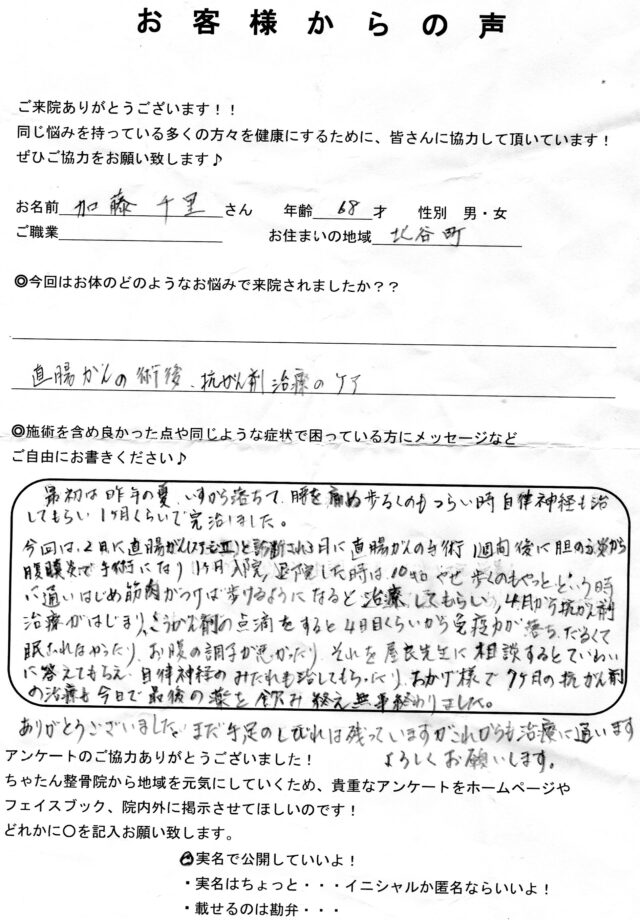 お客様からの声
ご来院ありがとうございます！！
同じ悩みを持っている多くの方々を健康にするために、皆さんに協力して頂いています！
ぜひご協力をお願い致します♪
お名前 加藤 千里 さん 年齢 68 才 性別 男・女
ご職業 お住まいの地域 北谷町
◎今回はお体のどのようなお悩みで来院されましたか？？
直腸がんの術後、抗がん剤治療のケア
◎施術を含め良かった点や同じような症状で困っている方にメッセージなど
ご自由にお書きください♪
最初は昨年の夏、いすから落ちて、腰を痛め歩くのもつらい時自律神経も治
してもらい1ヶ月くらいで完治しました。
今回は、2月に直腸がん(ステージⅢ)と診断され3月に直腸がんの手術 1週間後に胆の炎から
腹膜炎で手術になり1ヶ月入院、退院した時は10kgやせ歩くのもやっとという時
に通いはじめ筋肉がつけば歩けるようになると治療してもらい、4月から抗がん剤
治療がはじまり、こうがん剤の点滴をすると4日目くらいから免疫力が落ち、だるくて
眠れなかったり、お腹の調子が悪かったり、それを屋良先生に相談するとていねい
に答えてもらえ、自律神経のみだれも治してもらったり、おかげ様で7ヶ月の抗がん剤
の治療も今日で最後の薬を飲み終え無事終わりました。
ありがとうございました。まだ手足のしびれは残っていますがこれからも治療に通います
よろしくお願いします。
アンケートのご協力ありがとうございました！
ちゃたん整骨院から地域を元気にしていくため、貴重なアンケートをホームページや
フェイスブック、院内外に掲示させてほしいのです！
どれかに〇を記入お願い致します。
・実名で公開していいよ！
・実名はちょっと・・・イニシャルか匿名ならいいよ！
・載せるのは勘弁・・・